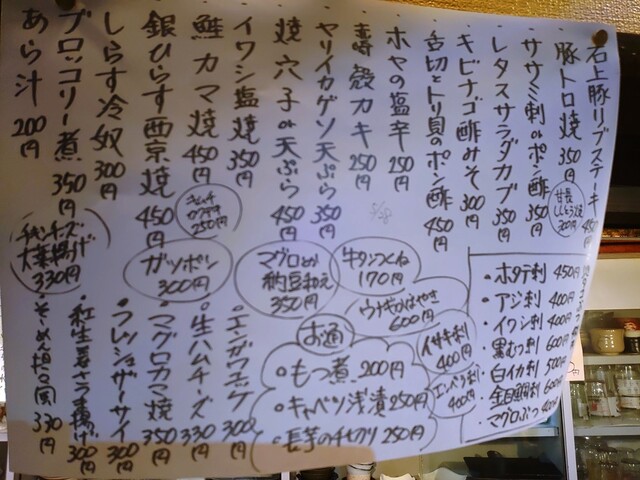 石上豚リブステーキ 450円
豚トロ焼 350円
甘長ししとう焼 300円
ササミ刺orポン酢 350円
レタスサラダカブ 350円
キビナゴ酢みそ 300円
舌切とり貝のポン酢 450円
ホヤの塩辛 250円
殻カキ 250円
ヤリイカゲソ天ぷら 350円
焼穴子or天ぷら 450円
イワシ塩焼 350円
鮭カマ焼 450円
銀ひらす西京焼 450円
しらす冷奴 300円
ブロッコリー煮 350円
あら汁 200円
5/28
・ホタテ刺 450円
・アジ刺 400円
・イワシ刺 400円
・黒むつ刺 600円
・白イカ刺 500円
・金目鯛刺 600円
・マグロぶつ 400円
牛タンつくね 170円
ウナギかばやき 600円
イサキ刺 400円
エンペラ刺 400円
マグロとか納豆和え 350円
ガツポン 300円
キムチ 250円
チーズ大葉揚げ 330円
お通
・もつ煮 200円
・キャベツ浅漬 250円
・長芋の千切り 250円
・エンガワユッケ 300円
・生ハムチーズ 330円
・マグロカマ焼 350円
・フレッシュザーサイ 300円
・紅生姜さつま揚げ 300円
330円